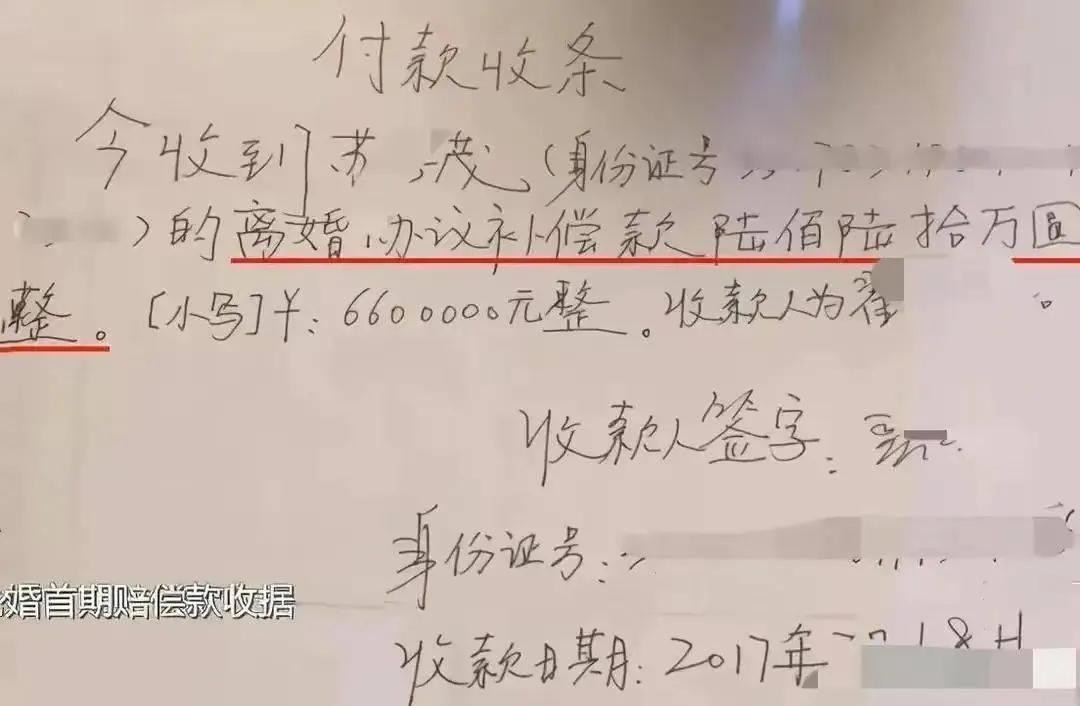 付款收条
今收到苏 茂（身份证号
）的离婚协议补偿款陆佰陆拾万圆
整。[小写]￥：6600000元整。收款人为翟 。
收款人签字：
身份证号：
婚首期赔偿款收据
收款日期：2017年 18日